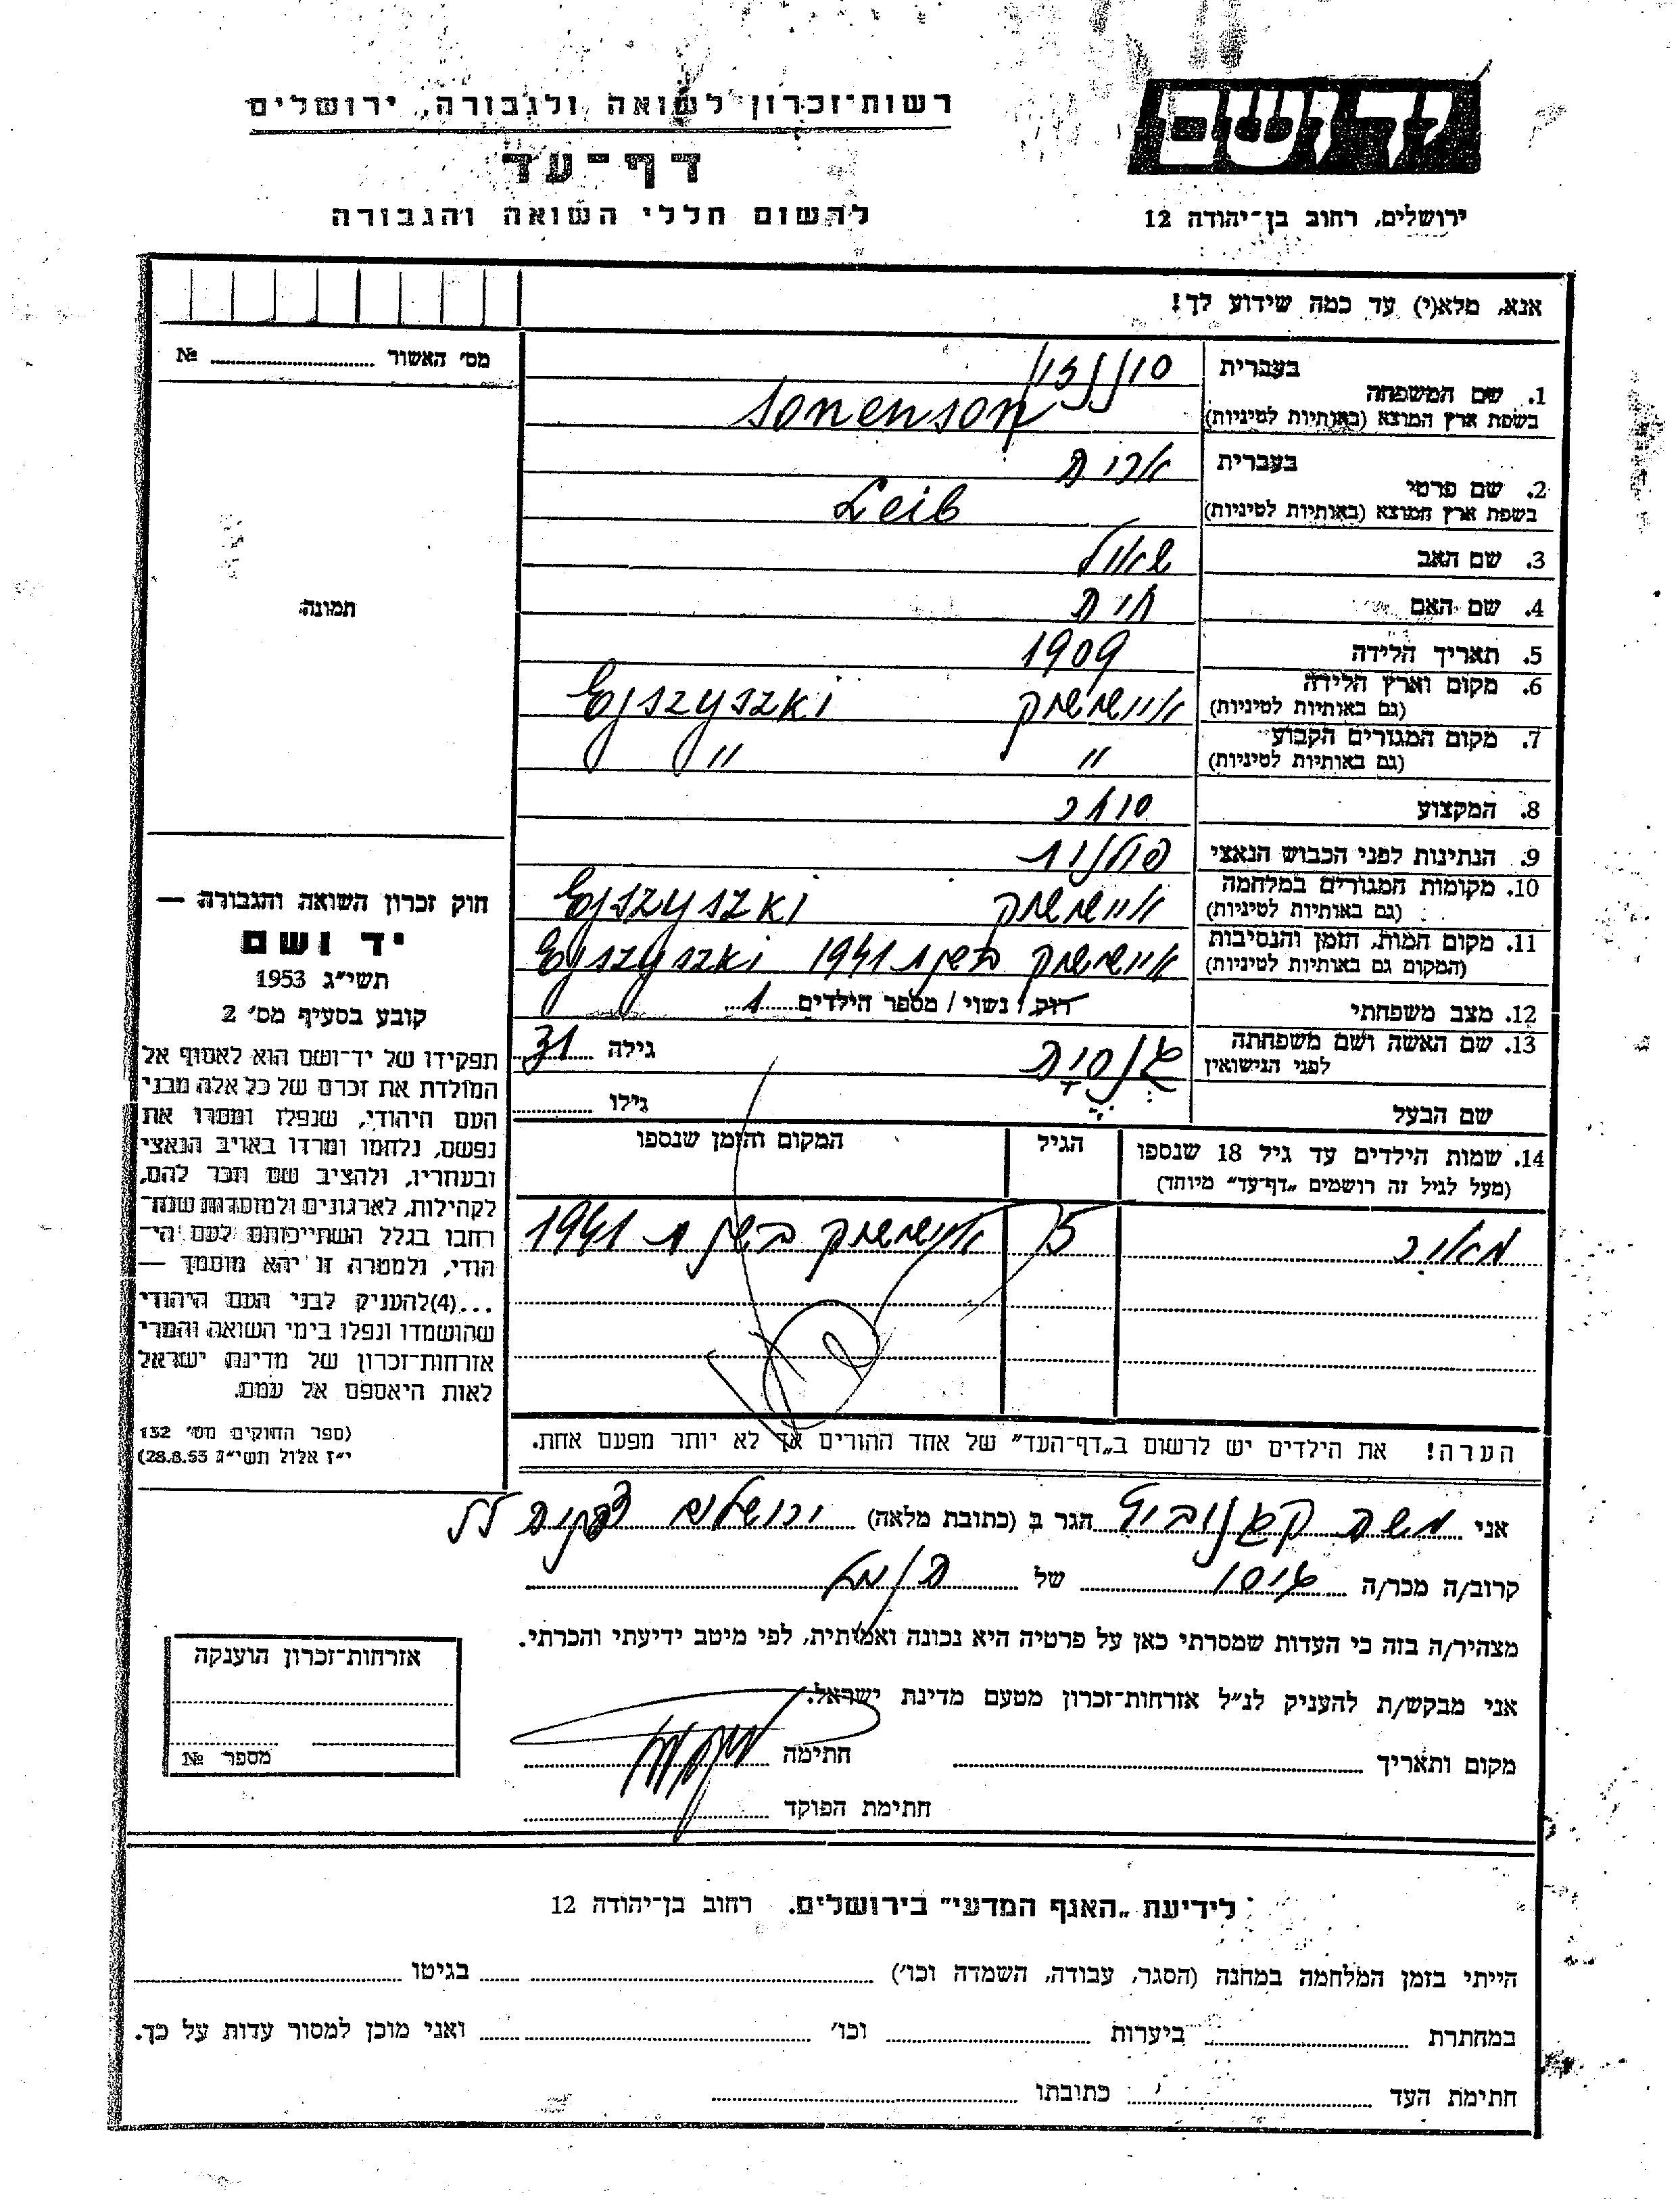 רשות־זכרון לשואה ולגבורה, ירושלים
דף־עד
לרשום חללי השואה והגבורה
יד ושם
ירושלים, רחוב בן־יהודה 12
אנא, מלא(י) עד כמה שידוע לך!
מס' האשור № 
תמונה
1. שם המשפחה
בעברית
בשפת ארץ המוצא (באותיות לטיניות) Sonenson
2. שם פרטי
בעברית אריה
בשפת ארץ המוצא (באותיות לטיניות) Leib
3. שם האב שאול
4. שם האם חיה
5. תאריך הלידה 1909
6. מקום וארץ הלידה
(גם באותיות לטיניות) איישישוק Ejszyszki
7. מקום המגורים הקבוע
(גם באותיות לטיניות) " "
8. המקצוע סוחר
9. הנתינות לפני הכבוש הנאצי פולנית
10. מקומות המגורים במלחמה
(גם באותיות לטיניות) איישישוק Ejszyszki
11. מקום המות, הזמן והנסיבות
(המקום גם באותיות לטיניות) איישישוק בשנת 1941 Ejszyszki
12. מצב משפחתי רווק / נשוי / מספר הילדים 1
13. שם האשה ושם משפחתה
לפני הנישואין
גילה 31
שם הבעל גילו
14. שמות הילדים עד גיל 18 שנספו
(מעל לגיל זה רושמים „דף־עד" מיוחד)
הגיל
המקום והזמן שנספו
מאיר איישישוק בשנת 1941
הערה! את הילדים יש לרשום ב„דף־העד" של אחד ההורים אך לא יותר מפעם אחת.
חוק זכרון השואה והגבורה —
יד ושם
תשי״ג 1953
קובע בסעיף מס' 2
תפקידו של יד־ושם הוא לאסוף אל
המולדת את זכרם של כל אלה מבני
העם היהודי, שנפלו ומסרו את
נפשם, נלחמו ומרדו באויב הנאצי
ובעוזריו, ולהציב שם וזכר להם,
לקהילות, לארגונים ולמוסדות שנח־
רבו בגלל השתייכותם לעם הי־
הודי, ולמטרה זו יהא מוסמך —
...(4)להעניק לבני העם היהודי
שהושמדו ונפלו בימי השואה והמרי
אזרחות־זכרון של מדינת ישראל
לאות היאספם אל עמם.
(ספר החוקים מס' 132
י״ז אלול תשי״ג 28.8.53)
אני משה הגר ב (כתובת מלאה) ירושלים
קרוב/ה מכר/ה של
מצהיר/ה בזה כי העדות שמסרתי כאן על פרטיה היא נכונה ואמתית, לפי מיטב ידיעתי והכרתי.
אני מבקש/ת להעניק לנ״ל אזרחות־זכרון מטעם מדינת ישראל.
מקום ותאריך חתימה
חתימת הפוקד
אזרחות־זכרון הוענקה
מספר №
לידיעת „האגף המדעי" בירושלים. רחוב בן־יהודה 12
הייתי בזמן המלחמה במחנה (הסגר, עבודה, השמדה וכו') בגיטו
במחתרת ביערות וכו' ואני מוכן למסור עדות על כך.
חתימת העד כתובתו